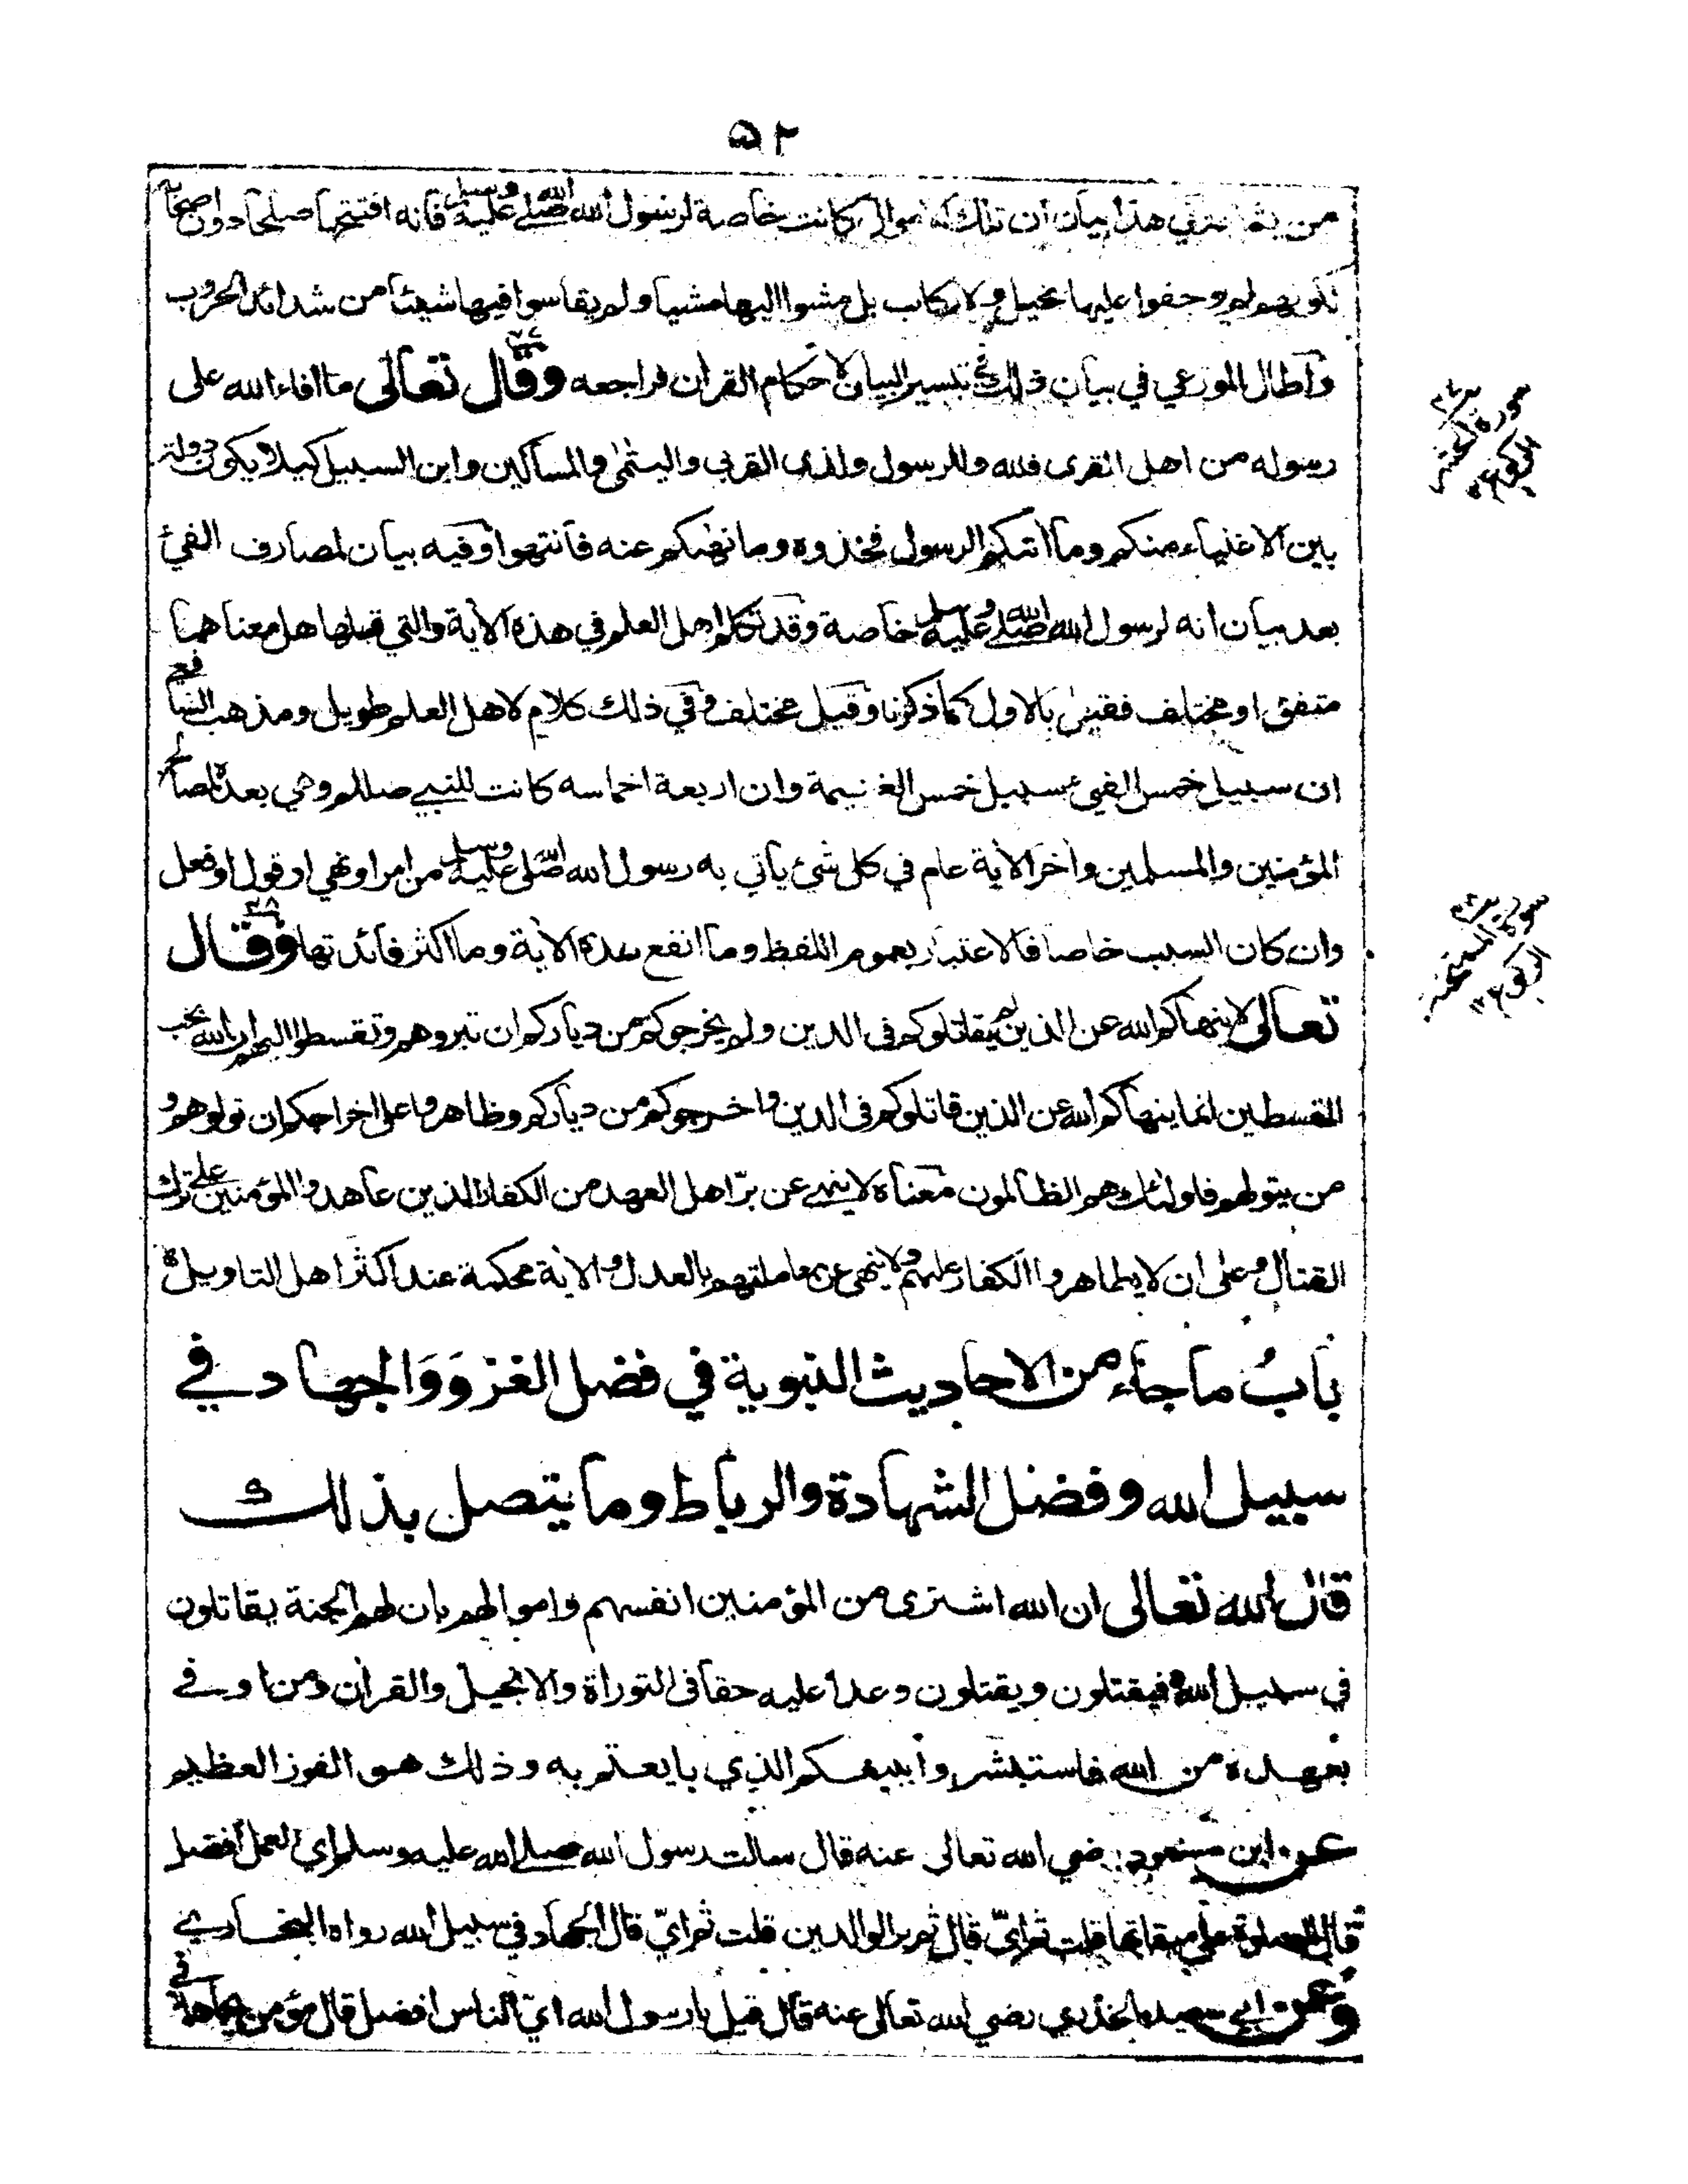 ۵۲
من يشاء وفي هذا بيان ان تلك الاموال كانت خاصة لرسول الله صلى الله عليه وسلم فانه افتتحها صلحا دون اصحابه
لكونهم لم يوجفوا عليها بخيل ولا ركاب بل مشوا اليها مشيا ولم يقاسوا فيها شيئا من شدائد الحروب
واطال الموزعي في بيان ذلك في تيسير البيان لاحكام القران فراجعه ۲۷ وقال تعالى ما افاء الله على
رسوله من اهل القرى فلله وللرسول ولذى القربى واليتمى والمساكين وابن السبيل كيلا يكون دولة
بين الاغنياء منكم وما اتكم الرسول فخذوه وما نهكم عنه فانتهوا وفيه بيان لمصارف الفئ
بعد بيان انه لرسول الله صلى الله عليه وسلم خاصة وقد تكلم اهل العلم في هذه الاية والتي قبلها هل معناهما
متفق او مختلف فقيل بالاول كما ذكرنا وقيل مختلف وفي ذلك كلام لاهل العلم طويل ومذهب الشافعي
ان سبيل خمس الفئ سبيل خمس الغنيمة وان اربعة اخماسه كانت للنبي صللم وهي بعده لمصالح
المؤمنين والمسلمين واخر الاية عام في كل شئ يأتي به رسول الله صلى الله عليه وسلم من امر او نهي او قول او فعل
وان كان السبب خاصا فالاعتبار بعموم اللفظ وما انفع هذه الاية وما اكثر فائدتها ۲۸ وقال
تعالى لا ينهاكم الله عن الذين لم يقاتلوكم فى الدين ولم يخرجوكم من دياركم ان تبروهم وتقسطوا اليهم ان الله يحب
المقسطين انما ينهاكم الله عن الذين قاتلوكم فى الدين واخرجوكم من دياركم وظاهروا على اخراجكم ان تولوهم و
من يتولهم فاولئك هم الظالمون معناه لا ينهى عن بر اهل العهد من الكفار الذين عاهدوا المؤمنين على ترك
القتال وعلى ان لا يظاهروا الكفار عليهم ولا ينهى عن معاملتهم بالعدل والاية محكمة عند اكثر اهل التاويل
باب ما جاء من الاحاديث النبوية في فضل الغزو والجهاد في
سبيل الله وفضل الشهادة والرباط وما يتصل بذلك
قال الله تعالى ان الله اشترى من المؤمنين انفسهم واموالهم بان لهم الجنة يقاتلون
في سبيل الله فيقتلون ويقتلون وعدا عليه حقا فى التوراة والانجيل والقران ومن اوفى
بعهده من الله فاستبشروا ببيعكم الذي بايعتم به وذلك هو الفوز العظيم
عن ابن مسعود رضي الله تعالى عنه قال سالت رسول الله صلى الله عليه وسلم اي العمل افضل
قال الصلوة على ميقاتها قلت ثم اي قال ثم بر الوالدين قلت ثم اي قال الجهاد في سبيل الله رواه البخاري
وعن ابي سعيد الخدري رضي الله تعالى عنه قال قيل يا رسول الله اي الناس افضل قال مؤمن يجاهد في
سورة الحشر
الركوع
سورة الممتحنة
الركوع